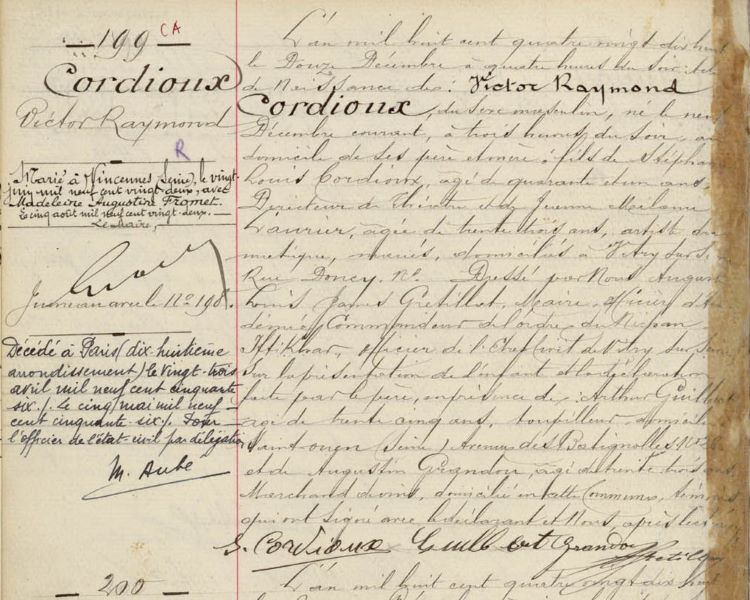 199 CA
Cordioux
Victor Raymond
R
Marié à Vincennes (Seine), le vingt-
juin mil neuf cent vingt-deux, avec
Madeleine Augustine Fromet.
Le cinq août mil neuf cent vingt-deux.
Le Maire,
Jumeau avec le N° 198.
Décédé à Paris (dix huitième
arrondissement) le vingt-trois
avril mil neuf cent cinquante
six./. Le cinq mai mil neuf
cent cinquante six./. Pour
l'officier de l'état-civil par délégation
M. Aube
L'an mil huit cent quatre vingt dix huit
le Douze Décembre à quatre heures du soir:
de Naissance de: Victor Raymond
Cordioux, du sexe masculin, né le neuf
Décembre courant, à trois heures du soir, au
domicile de ses père et mère; fils de Stéphane
Louis Cordioux, âgé de quarante et un ans,
Directeur de théâtre et de Jeanne
Laurier, agée de trente trois ans, artiste
mariés, domiciliés à Vitry sur Seine
Rue N° Dressé par Nous August
Louis James Gretillat, Maire, officier d'Aca
démie, Commandeur de l'ordre du Nichan
Iftikhar, officier de l'Etat Civil de Vitry sur Seine
sur la présentation de l'enfant et la déclaration
faite par le père, en présence de: Arthur
agé de trente cinq ans, domicilié
Saint-ouen (Seine) Avenue des Batignolles N° 28
et de Augustin Grandou, agé de trente trois ans,
Marchand de vins, domicilié en cette Commune, témoins
qui ont signé avec le déclarant et Nous, après lecture
S. Cordioux Guill Grandou
200
L'an mil huit cent quatre vingt dix huit